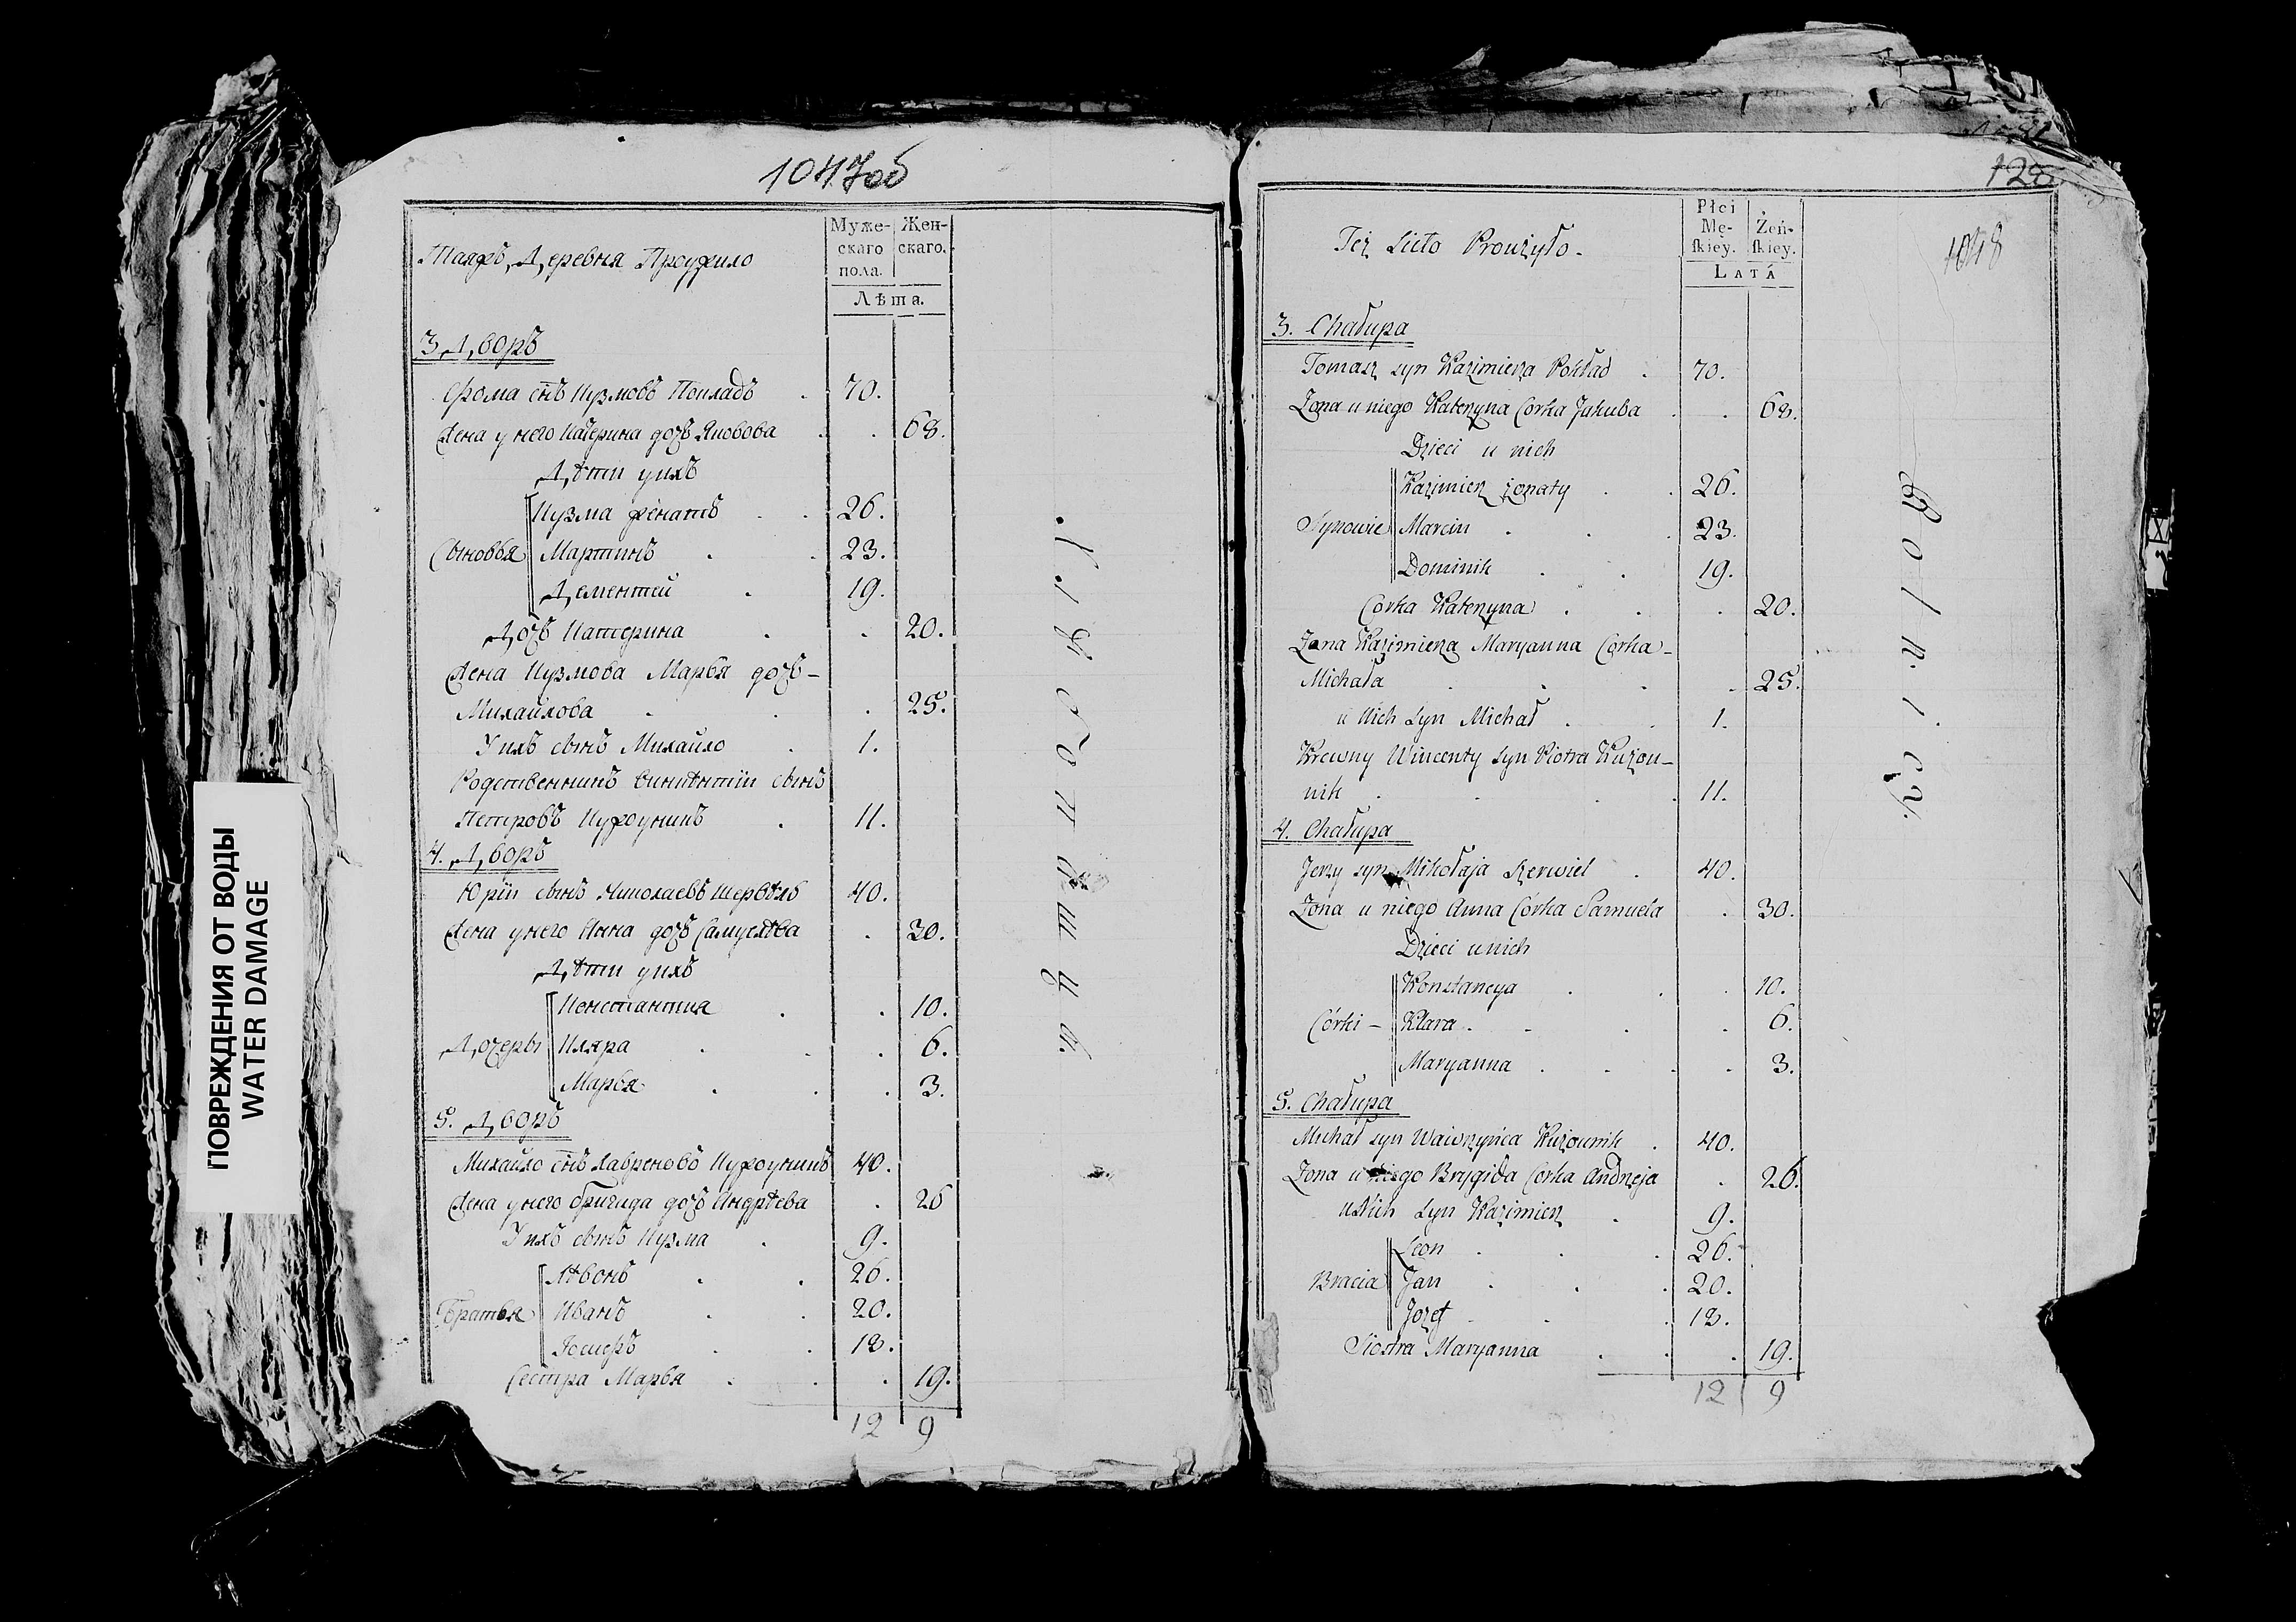 1047об
Таяжъ Деревня Проужило
Муже-
скаго
пола.
Жен-
скаго.
Лѣта.
3 Дворъ
Фома сн҃ъ Кузмовъ Покладъ . 70.
Жена у него Катерина дочь Яковова . . 68.
Дѣти у ихъ
Кузма женатъ . . 26.
Сыновья Мартинъ . . 23.
Дементей . 19.
Дочь Катерина . . 20.
Жена Кузмова Марья дочь-
Михайлова . . . 25.
У ихъ сынъ Михайло . 1.
Родственникъ Винцентій сынъ
Петровъ Кужоуникъ . 11.
4. Дворъ
Юрій сынъ Николаевъ Шервѣль 40.
Жена у него Анна дочь Самуелѣва . 30.
Дѣти у ихъ
Константия . . 10.
Дочеры Кляра . . . 6.
Марья . . . 3.
5. Дворъ
Михайло сн҃ъ Лавреновъ Кужоуникъ 40.
Жена у него Бригида дочь Андрѣева . 26
У ихъ сынъ Кузма . 9.
Лѣвонъ . . 26.
Братья Иванъ . . 20.
Іосифъ . . 18.
Сестра Марья . . . 19.
12 9
120
1048
Też Sieło Proużyło.
Płci
Mę-
ſkiey.
Żeń-
ſkiey.
LATA
3. Chałupa
Tomasz syn Kazimierza Pokład . 70.
Żona u niego Katerzyna Corka Jakuba . . 68.
Dzieci u nich
Kazimierz żonaty . . 26.
Synowie Marcin . . 23.
Dominik . . 19.
Corka Katerzyna . . . 20.
Żona Kazimierza Maryanna Corka-
Michała . . . . 25.
u Nich syn Michał . . 1.
Krewny Wincenty syn Piotra Kużou-
nik . . . . 11.
4. Chałupa
Jerzy syn Mikołaja Szerwiel . 40.
Żona u niego Anna Córka Samuela . 30.
Dzieci u nich
Konstancya . . . 10.
Córki - Klara . . . . 6.
Maryanna . . . . 3.
5. Chałupa
Michał syn Wawrzyńca Kużounik . 40.
Żona u niego Brygida Corka Andrzeja . 26.
u Nich syn Kazimierz . 9.
Leon . . . 26.
Bracia Jan . . . 20.
Jozef . . . 18.
Siostra Maryanna . . . 19.
12 9
Rolnicy.
ПОВРЕЖДЕНИЯ ОТ ВОДЫ
WATER DAMAGE